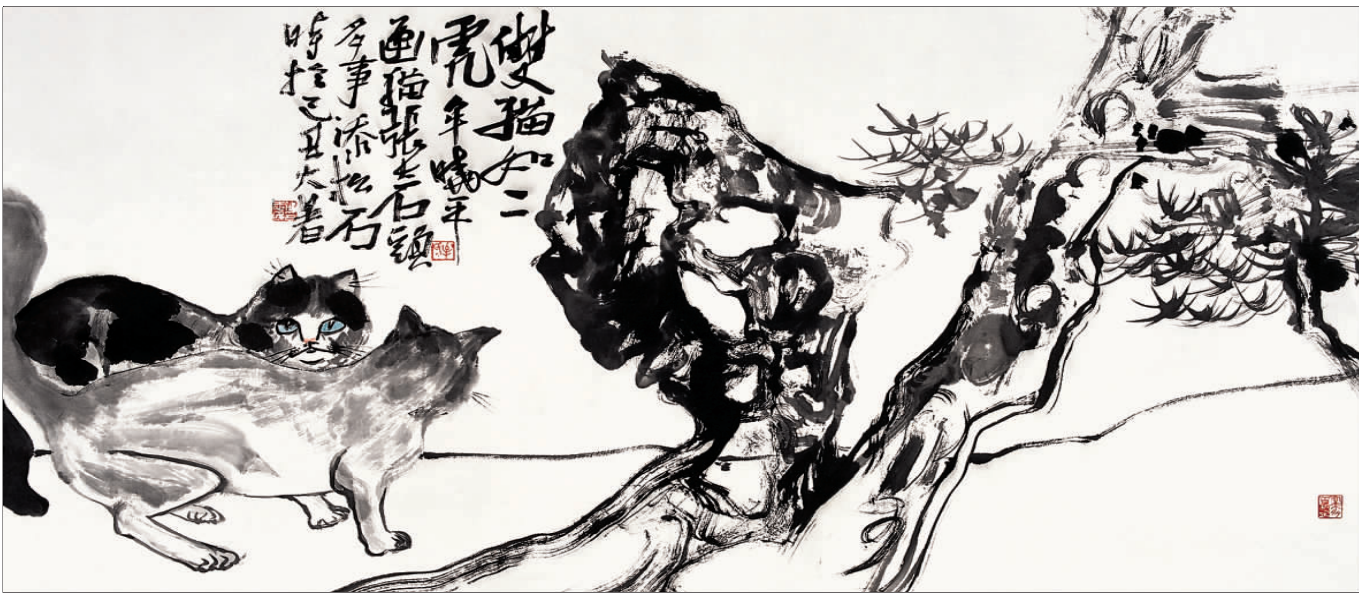 雙猫如二
虎曉平
画猫張石頭
多事添松石
時於己丑大暑